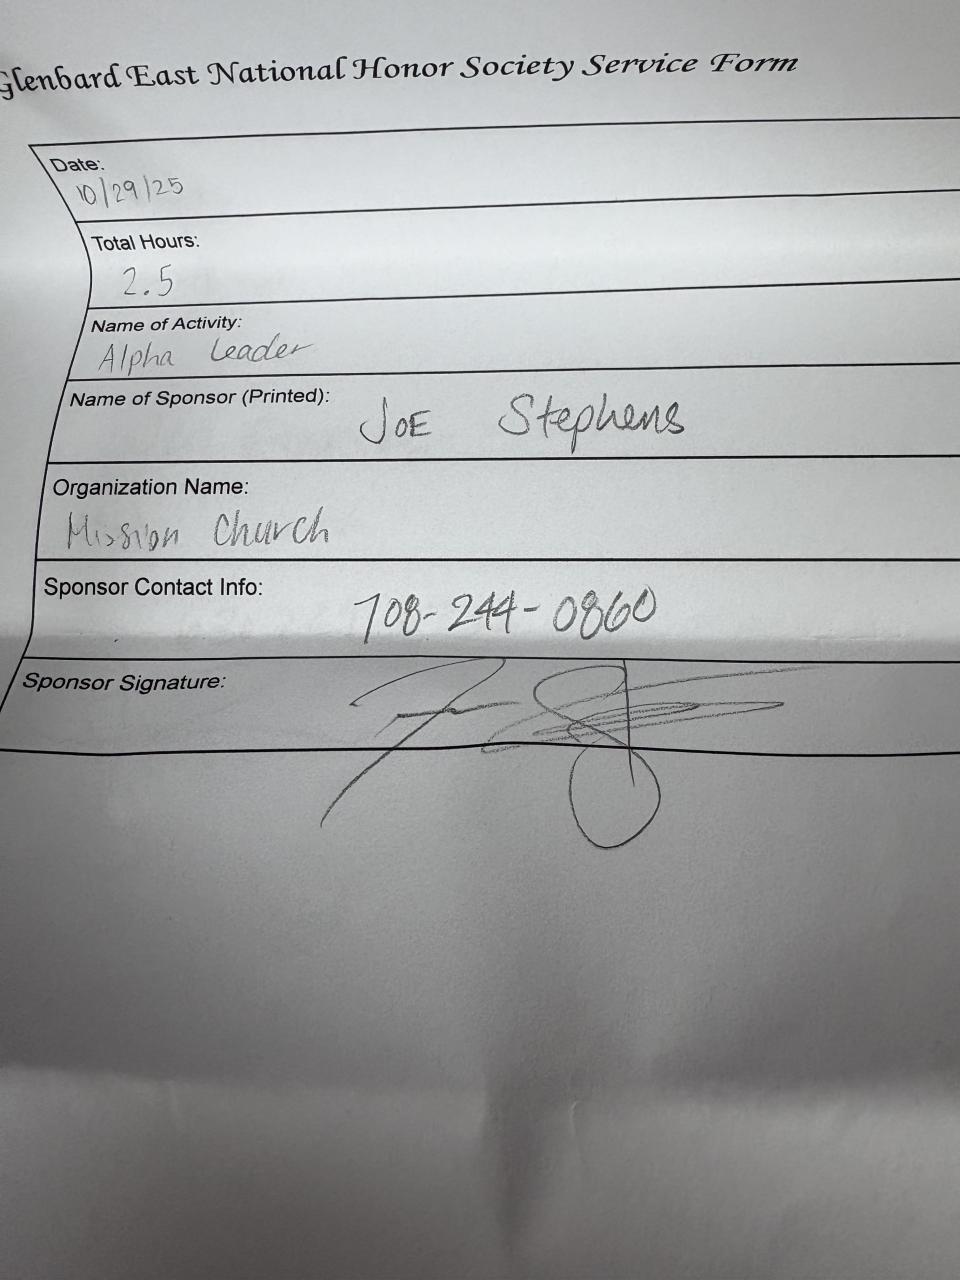 Glenbard East National Honor Society Service Form
Date:
10/29/25
Total Hours:
2.5
Name of Activity:
Alpha Leader
Name of Sponsor (Printed):
JOE Stephens
Organization Name:
Mission Church
Sponsor Contact Info:
708-244-0860
Sponsor Signature: